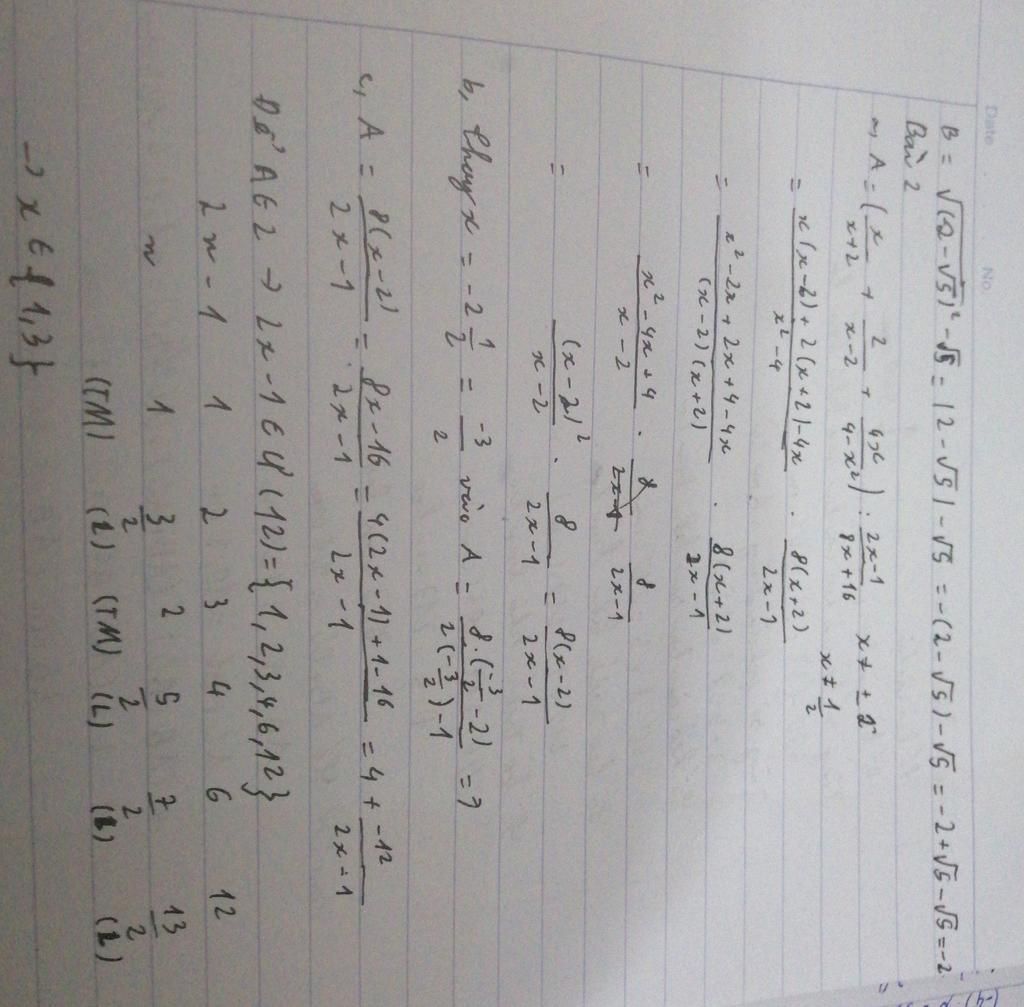 Date No.
B = √((2-√5)²) - √5 = |2-√5| - √5 = -(2-√5) - √5 = -2+√5-√5 = -2
Bài 2
a, A = (x/(x+2) + 2/(x-2) + 4x/(4-x²)) : (2x-1)/(8x+16) x ≠ ±2
x ≠ 1/2
= (x(x-2)+2(x+2)-4x)/(x²-4) . 8(x+2)/(2x-1)
= (x²-2x+2x+4-4x)/((x-2)(x+2)) . 8(x+2)/(2x-1)
= (x²-4x+4)/(x-2) . 8/(2x-1)
= (x-2)²/(x-2) . 8/(2x-1) = 8(x-2)/(2x-1)
b, Thay x = -2 1/2 = -3/2 vào A = (8.(-3/2 -2))/(2(-3/2)-1) = 7
c, A = 8(x-2)/(2x-1) = (8x-16)/(2x-1) = (4(2x-1)+1-16)/(2x-1) = 4 + -12/(2x-1)
Để A ∈ Z → 2x-1 ∈ Ư(12) = {1,2,3,4,6,12}
2x-1 1 2 3 4 6 12
x 1 3/2 2 5/2 7/2 13/2
(TM) (L) (TM) (L) (L) (L)
→ x ∈ {1,3}